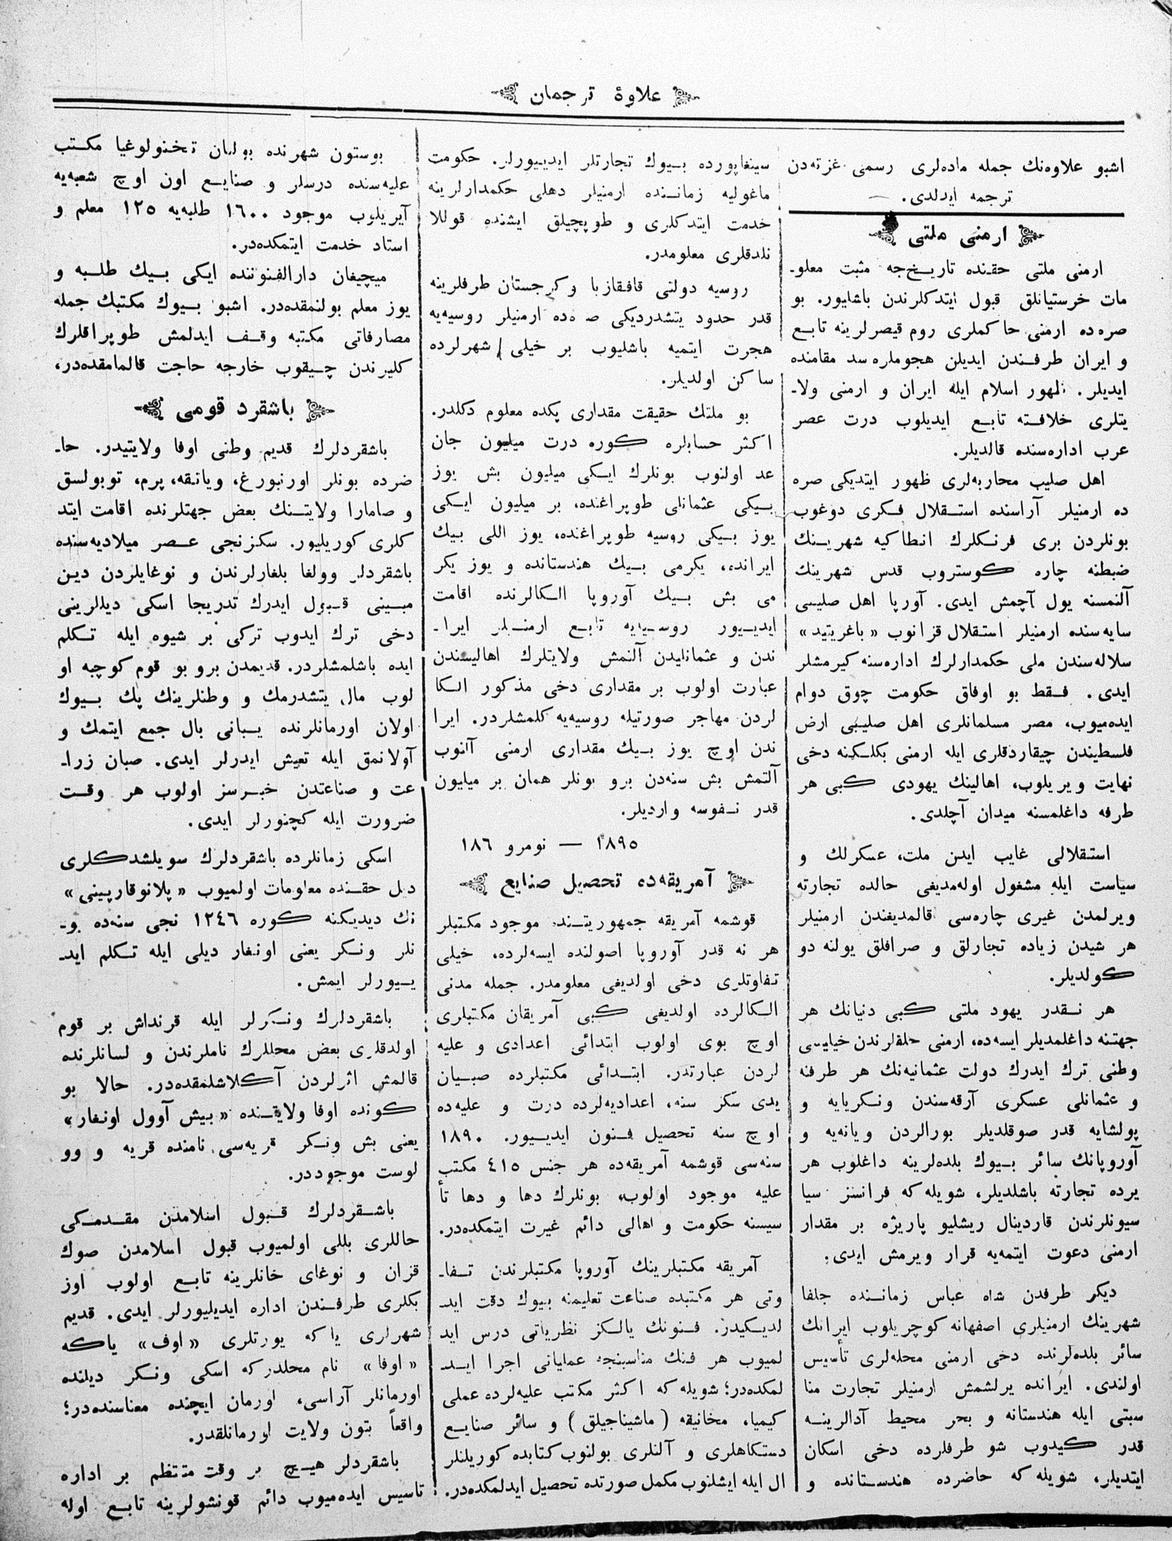 علاوۀ ترجمان
اشبو علاوه‌نك جمله ماده‌لری رسمی غزته‌دن
ترجمه ایدلدی.
ارمنی ملتی
ارمنی ملتی حقنده تاریخجه مثبت معلو-
مات خرستیانلق قبول ایتدكلرندن باشلیور. بو
صره‌ده ارمنی حاكملری روم قیصرلرینه تابع
و ایران طرفندن ایدیلن هجوملره سد مقامنده
ایدیلر. ظهور اسلام ایله ایران و ارمنی ولا-
یتلری خلافته تابع ایدیلوب درت عصر
عرب اداره‌سنده قالدیلر.
اهل صلیب محاربه‌لری ظهور ایتدیكی صره
ده ارمنیلر آراسنده استقلال فكری دوغوب
بونلردن بری فرنكلرك انطاكیه شهرینك
ضبطنه چاره كوستروب قدس شهرینك
آلنمسنه یول آچمش ایدی. آورپا اهل صلیبی
سایه‌سنده ارمنیلر استقلال قزانوب «باغریتید»
سلاله‌سندن ملی حكمدارلرك اداره‌سنه كیرمشلر
ایدی. فقط بو اوفاق حكومت چوق دوام
ایده‌میوب، مصر مسلمانلری اهل صلیبی ارض
فلسطیندن چیقاردقلری ایله ارمنی بكلكنه دخی
نهایت ویریلوب، اهالینك یهودی كبی هر
طرفه داغلمسنه میدان آچلدی.
استقلالی غایب ایدن ملت، عسكرلك و
سیاست ایله مشغول اوله‌مدیغی حالده تجارته
ویرلمدن غیری چاره‌سی قالمدیغندن ارمنیلر
هر شیدن زیاده تجارلق و صرافلق یولنه دو
كولدیلر.
هر نقدر یهود ملتی كبی دنیانك هر
جهتنه داغلمدیلر ایسه‌ده، ارمنی خلقلرندن خیلیسی
وطنی ترك ایدرك دولت عثمانیه‌نك هر طرفنه
و عثمانلی عسكری آرقه‌سندن ونكریایه و
پولشایه قدر صوقلدیلر بورالردن ویانه‌یه و
آوروپانك سائر بیوك بلده‌لرینه داغلوب هر
یرده تجارته باشلدیلر، شویله‌كه فرانسز سیا
سیونلرندن قاردینال ریشلیو پاریژه بر مقدار
ارمنی دعوت ایتمه‌یه قرار ویرمش ایدی.
دیكر طرفدن شاه عباس زماننده جلفا
شهرینك ارمنیلری اصفهانه كوچریلوب ایرانك
سائر بلده‌لرنده دخی ارمنی محله‌لری تأسیس
اولندی. ایرانده یرلشمش ارمنیلر تجارت منا
سبتی ایله هندستانه و بحر محیط آدالرینه
قدر كیدوب شو طرفلرده دخی اسكان
ایتدیلر، شویله‌كه حاضرده هندستانده و
سینغاپورده بیوك تجارتلر ایدییورلر. حكومت
ماغولیه زماننده ارمنیلر دهلی حكمدارلرینه
خدمت ایتدكلری و طوپچیلق ایشنده قوللا
نلدقلری معلومدر.
روسیه دولتی قافقازیا و كرجستان طرفلرینه
قدر حدود یتشدردیكی صره‌ده ارمنیلر روسیه‌یه
هجرت ایتمیه باشلیوب بر خیلی شهرلرده
ساكن اولدیلر.
بو ملتك حقیقت مقداری پكده معلوم دكلدر.
اكثر حسابلره كوره درت میلیون جان
عد اولنوب بونلرك ایكی میلیون بش یوز
بیكی عثمانلی طوپراغنده، بر میلیون ایكی
یوز بیكی روسیه طوپراغنده، یوز اللی بیك
ایرانده، یكرمی بیك هندستانده و یوز یكر
می بش بیك آوروپا الكالرنده اقامت
ایدییور روسیایه تابع ارمنیلر ایرا-
ندن و عثمانلیدن آلنمش ولایتلرك اهالیسندن
عبارت اولوب بر مقداری دخی مذكور الكا
لردن مهاجر صورتیله روسیه‌یه كلمشلردر. ایرا
ندن اوچ یوز بیك مقداری ارمنی آلنوب
آلتمش بش سنه‌دن برو بونلر همان بر میلیون
قدر نفوسه واردیلر.
١٨٩٥ — نومرو ١٨٦
آمریقه‌ده تحصیل صنایع
قوشمه آمریقه جمهوریتنده موجود مكتبلر
هر نه قدر آوروپا اصولنده ایسه‌لرده، خیلی
تفاوتلری دخی اولدیغی معلومدر. جمله مدنی
الكالرده اولدیغی كبی آمریقان مكتبلری
اوچ بوی اولوب ابتدائی اعدادی و علیه
لردن عبارتدر. ابتدائی مكتبلرده صبیان
یدی سكز سنه، اعدادیه‌لرده درت و علیه‌ده
اوچ سنه تحصیل فنون ایدییور. ١٨٩٠
سنه‌سی قوشمه آمریقه‌ده هر جنس ٤١٥ مكتب
علیه موجود اولوب، بونلرك دها و دها تأ
سیسنه حكومت و اهالی دائم غیرت ایتمكده‌در.
آمریقه مكتبلرینك آوروپا مكتبلرندن تفا-
وتی هر مكتبده صناعت تعلیمنه بیوك دقت اید-
لدیكیدر. فنونك یالكز نظریاتی درس اید
لمیوب هر فنك مناسبتجه عملیاتی اجرا اید-
لمكده‌در؛ شویله‌كه اكثر مكتب علیه‌لرده عملی
كیمیا، مخانیقه (ماشیناجیلق) و سائر صنایع
دستكاهلری و آلتلری بولنوب كتابده كوریلنلر
ال ایله ایشلنوب مكمل صورتده تحصیل ایدلمكده‌در.
بوستون شهرنده بولنان تخنولوغیا مكتب
علیه‌سنده درسلر و صنایع اون اوچ شعبه‌یه
آیریلوب موجود ١٦٠٠ طلبه‌یه ١٢٥ معلم و
استاد خدمت ایتمكده‌در.
میچیغان دارالفنوننده ایكی بیك طلبه و
یوز معلم بولنمقده‌در. اشبو بیوك مكتبك جمله
مصارفاتی مكتبه وقف ایدلمش طوپراقلرك
كلیرندن چیقوب خارجه حاجت قالمامقده‌در،
باشقرد قومی
باشقردلرك قدیم وطنی اوفا ولایتیدر. حا-
ضرده بونلر اورنبورغ، ویاتقه، پرم، توبولسق
و صامارا ولایتنك بعض جهتلرنده اقامت ایتد
كلری كوریلیور. سكزنجی عصر میلادیه‌سنده
باشقردلر وولغا بلغارلرندن و نوغایلردن دین
مبینی قبول ایدرك تدریجا اسكی دیللرینی
دخی ترك ایدوب تركی بر شیوه ایله تكلم
ایده باشلمشلردر. قدیمدن برو بو قوم كوچبه او
لوب مال یتشدرمك و وطنلرینك پك بیوك
اولان اورمانلرنده یبانی بال جمع ایتمك و
آولانمق ایله تعیش ایدرلر ایدی. صبان زرا-
عت و صناعتدن خبرسز اولوب هر وقت
ضرورت ایله كچنورلر ایدی.
اسكی زمانلرده باشقردلرك سویلشدكلری
دیل حقنده معلومات اولمیوب «پلانوقارپینی»
نك دیدیكنه كوره ١٢٤٦ نجی سنه‌ده بو-
نلر ونكر یعنی اونغار دیلی ایله تكلم اید-
ییورلر ایمش.
باشقردلرك ونكرلر ایله قرنداش بر قوم
اولدقلری بعض محللرك ناملرندن و لسانلرنده
قالمش اثرلردن آكلاشلمقده‌در. حالا بو
كونده اوفا ولایتنده «بیش آوول اونغار»
یعنی بش ونكر قریه‌سی نامنده قریه و وو
لوست موجوددر.
باشقردلرك قبول اسلامدن مقدمكی
حاللری بللی اولمیوب قبول اسلامدن صوك
قزان و نوغای خانلرینه تابع اولوب اوز
بكلری طرفندن اداره ایدیلیورلر ایدی. قدیم
شهرلری یاكه یورتلری «اوف» یاكه
«اوفا» نام محلدركه اسكی ونكر دیلنده
اورمانلر آراسی، اورمان ایچنده معناسنده‌در؛
واقعاً بتون ولایت اورمانلقدر.
باشقردلر هیچ بر وقت منتظم بر اداره
تاسیس ایده‌میوب دائم قونشولرینه تابع اوله